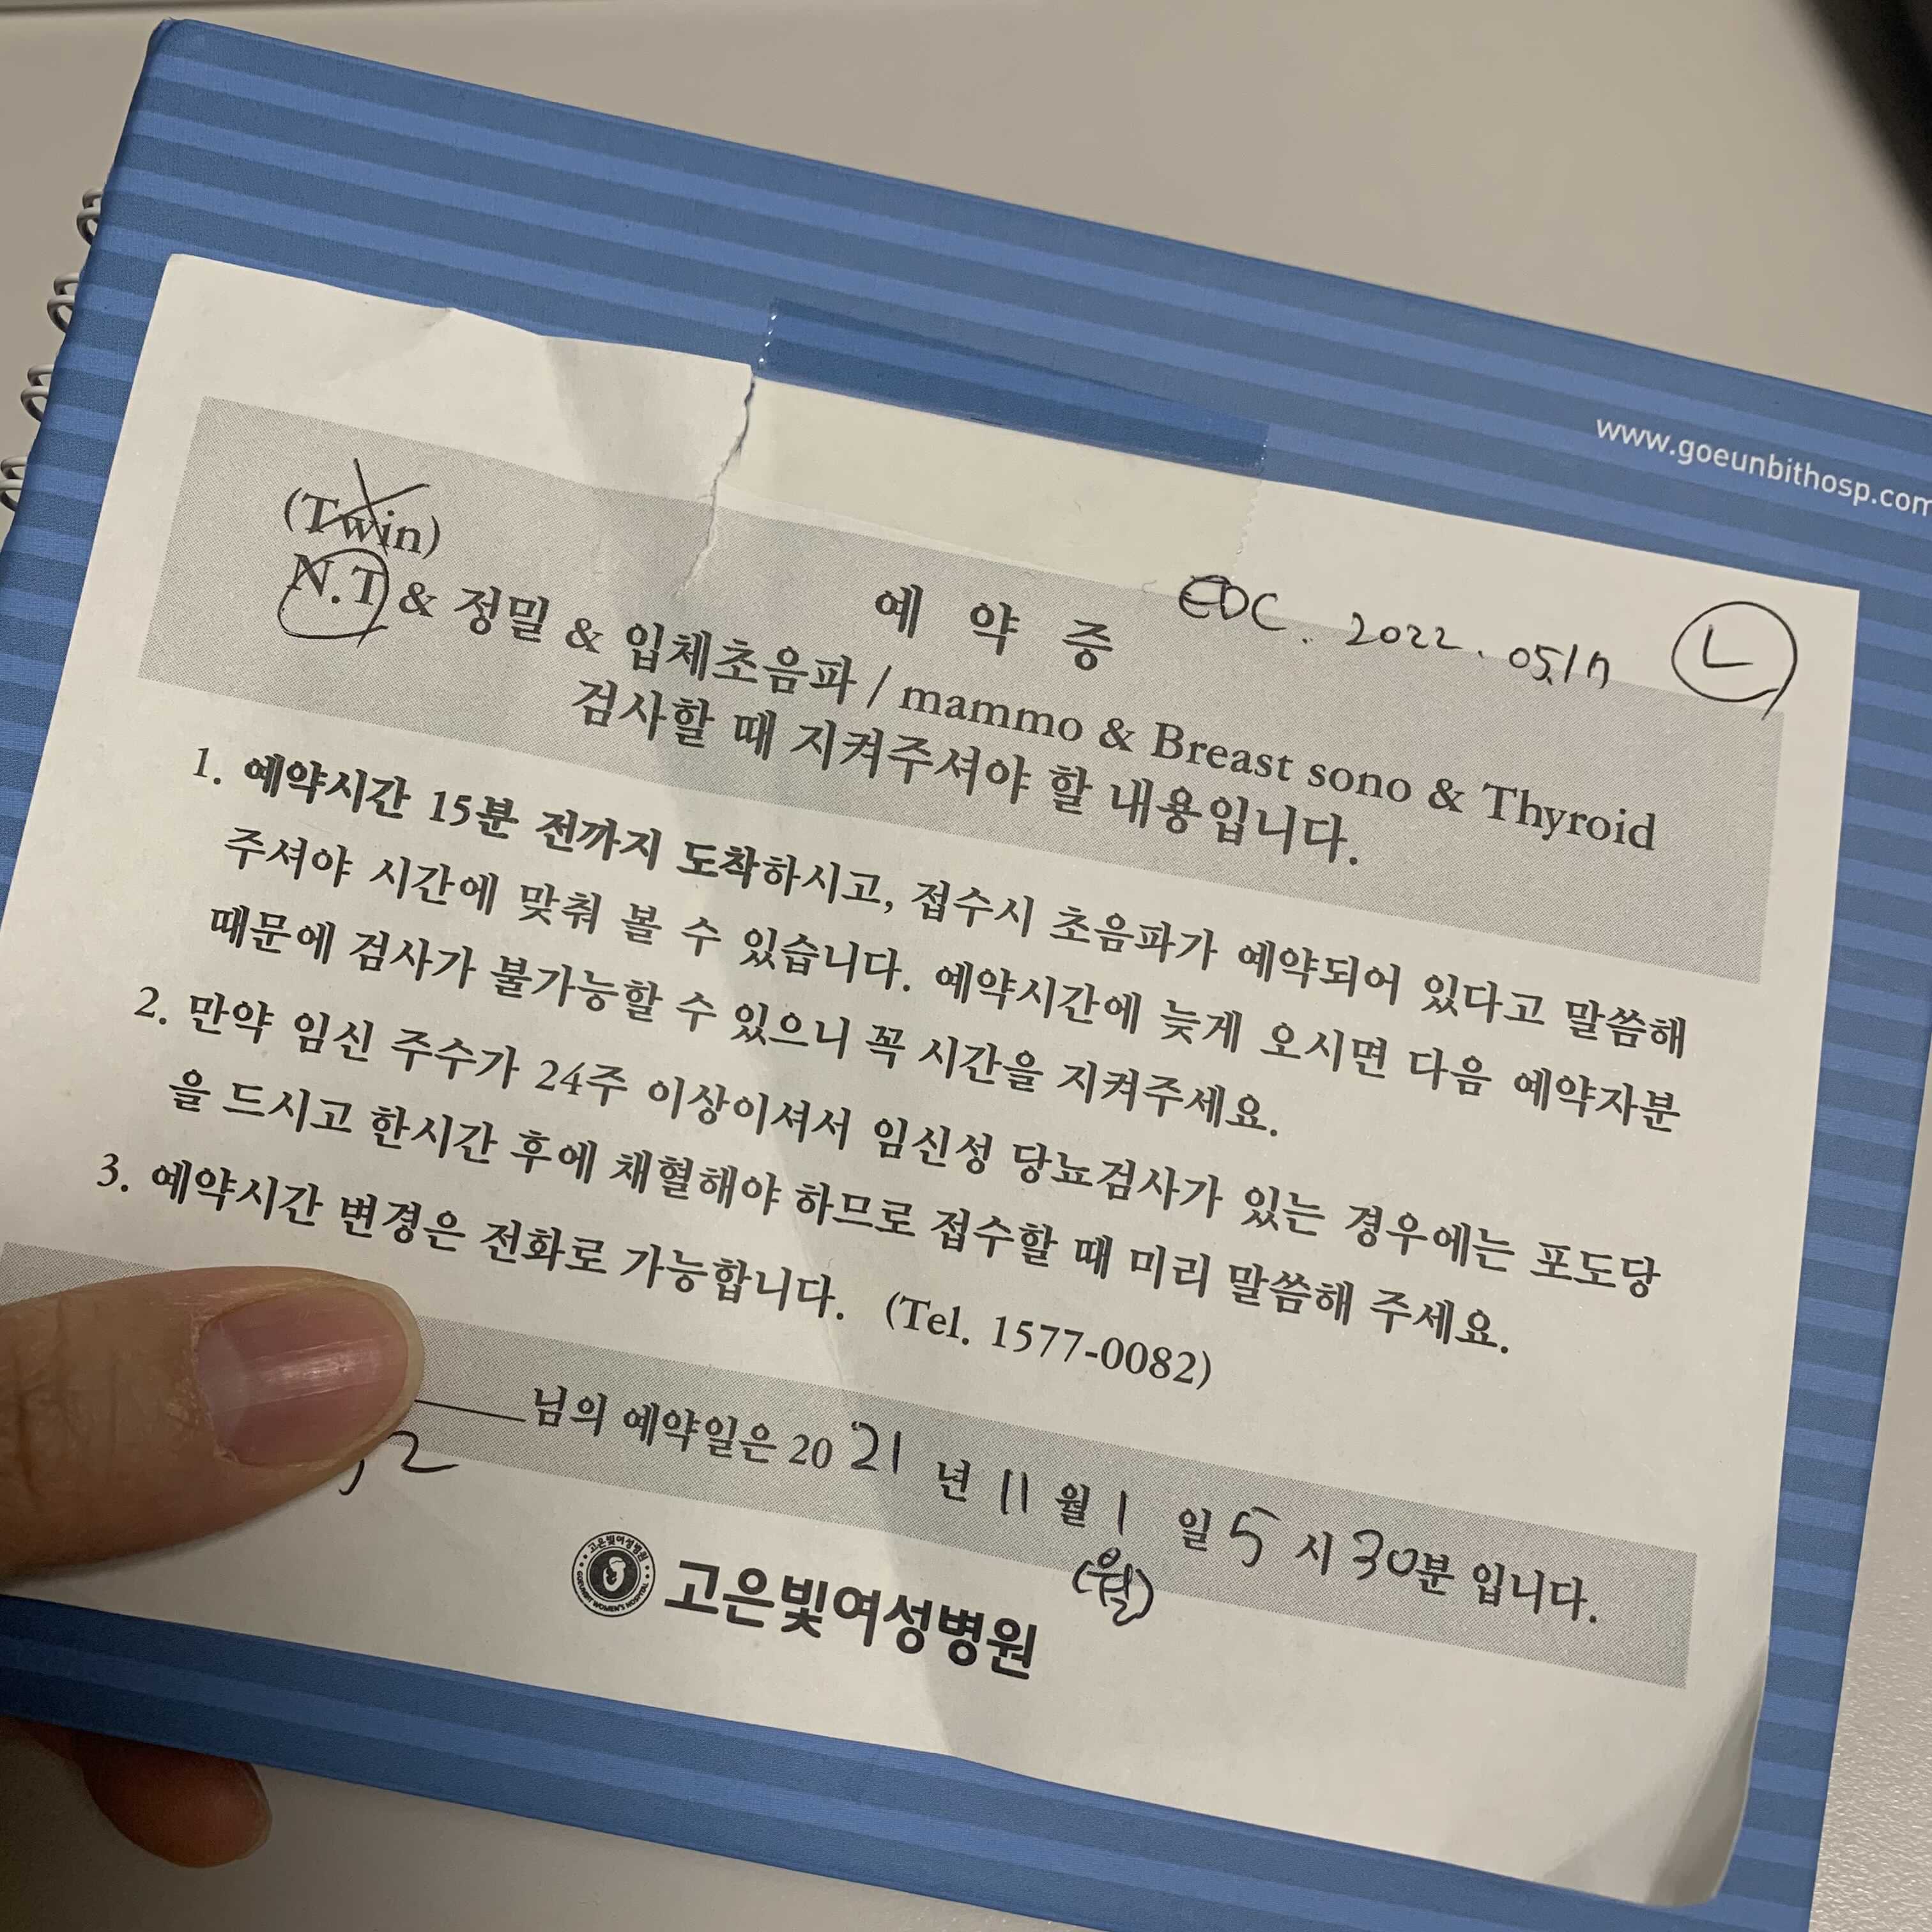 www.goeunbithosp.com
(Twin)
예 약 증 EDC. 2022. 05.17 L
N.T & 정밀 & 입체초음파 / mammo & Breast sono & Thyroid
검사할 때 지켜주셔야 할 내용입니다.
1. 예약시간 15분 전까지 도착하시고, 접수시 초음파가 예약되어 있다고 말씀해
주셔야 시간에 맞춰 볼 수 있습니다. 예약시간에 늦게 오시면 다음 예약자분
때문에 검사가 불가능할 수 있으니 꼭 시간을 지켜주세요.
2. 만약 임신 주수가 24주 이상이셔서 임신성 당뇨검사가 있는 경우에는 포도당
을 드시고 한시간 후에 채혈해야 하므로 접수할 때 미리 말씀해 주세요.
3. 예약시간 변경은 전화로 가능합니다. (Tel. 1577-0082)
님의 예약일은 2021년 11월 1일 5시 30분 입니다.
(월)
고은빛여성병원